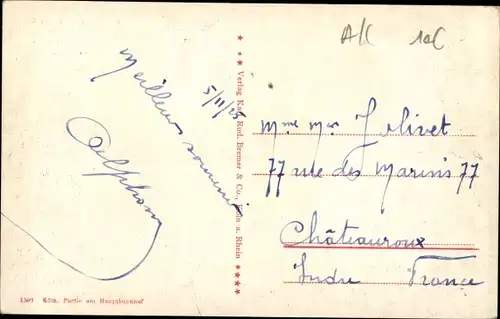 A/C 10C
Meilleur souvenir
5/11/25
Alphons
★★★ Verlag Karl Rud. Bremer & Co., Köln a. Rhein ★★★★
Mme Mar Jolivet
77 rue des Marins 77
Châteauroux
Indre France
1509 Köln, Partie am Hauptbahnhof